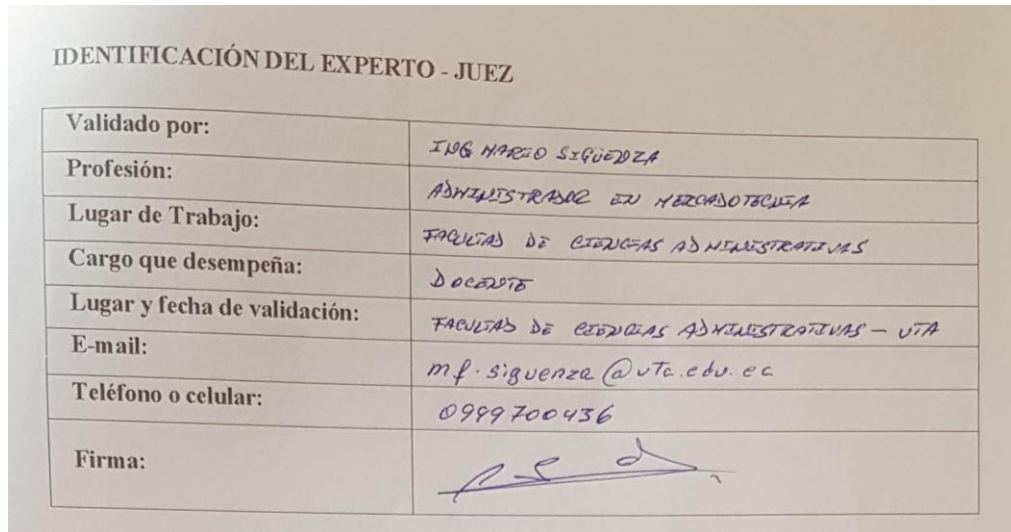 IDENTIFICACIÓN DEL EXPERTO - JUEZ
Validado por: ING MARIO SIGÜENZA
Profesión: ADMINISTRADOR EN MERCADOTECNIA
Lugar de Trabajo: FACULTAD DE CIENCIAS ADMINISTRATIVAS
Cargo que desempeña: DOCENTE
Lugar y fecha de validación: FACULTAD DE CIENCIAS ADMINISTRATIVAS - UTA
E-mail: mf.siguenza@uta.edu.ec
Teléfono o celular: 0999700436
Firma: